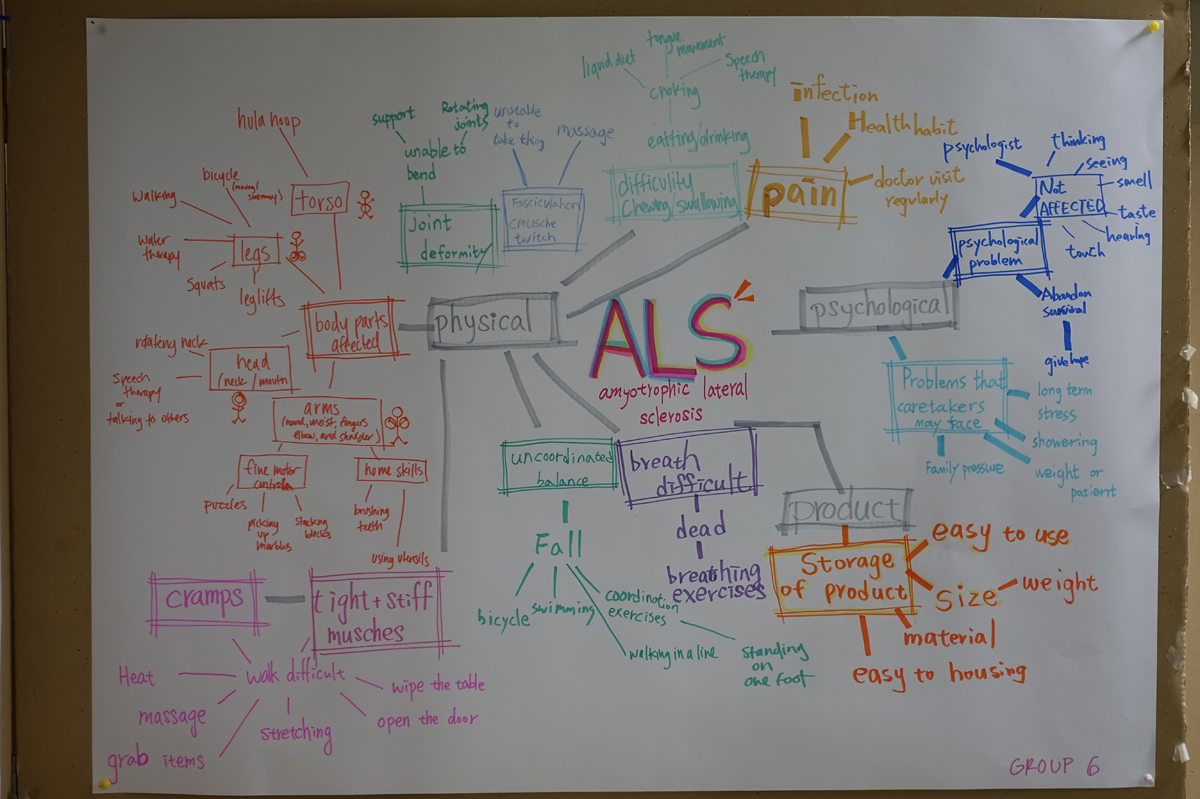 tongue
movement
liquid diet
speech
therapy
choking
eatting/drinking
difficulity
Chewing/swallowing
infection
Health habit
pain
doctor visit
regularly
psychologist
thinking
seeing
smell
taste
hearing
touch
Not
AFFECTED
psychological
problem
Abandon
survival
give hope
hula hoop
support
Rotating
joints
unable to
bend
Joint
deformity
unstable
to
take thing
massage
Fasciculation
twitch
bicycle
walking
torso
water
therapy
legs
Squats
leglifts
body parts
affected
physical
ALS
amyotrophic lateral
sclerosis
psychological
rotating neck
head
/neck/mouth
speech
therapy
or
talking to others
arms
elbow, and shoulder)
fine motor
home skills
puzzles
picking
up
marbles
stacking
blocks
brushing
teeth
using utensils
Problems that
caretakers
may face
long term
stress
showering
weight or
patient
Family pressure
uncoordinated
balance
Fall
bicycle
swimming
coordination
exercises
walking in a line
standing
on
one foot
breath
difficult
dead
breathing
exercises
product
Storage
of product
easy to use
size
weight
material
easy to housing
cramps
tight + stiff
musches
walk difficult
Heat
massage
grab items
stretching
wipe the table
open the door
GROUP 6